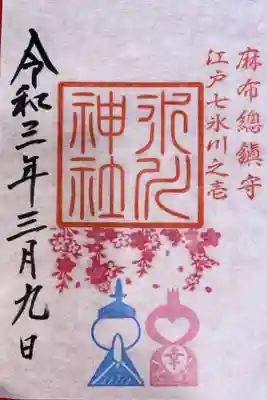 麻布總鎮守
江戸七氷川之壱
氷川
神社
令和三年三月九日
幸